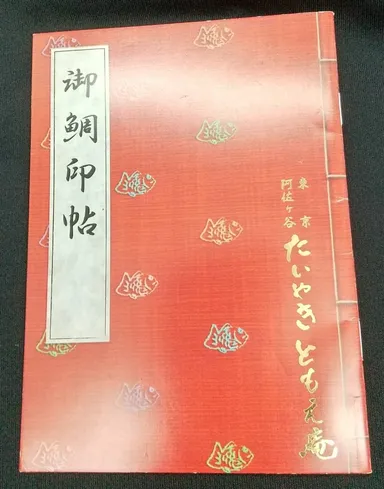 御鯛印帖
東京
阿佐ヶ谷
たいやき ともえ庵